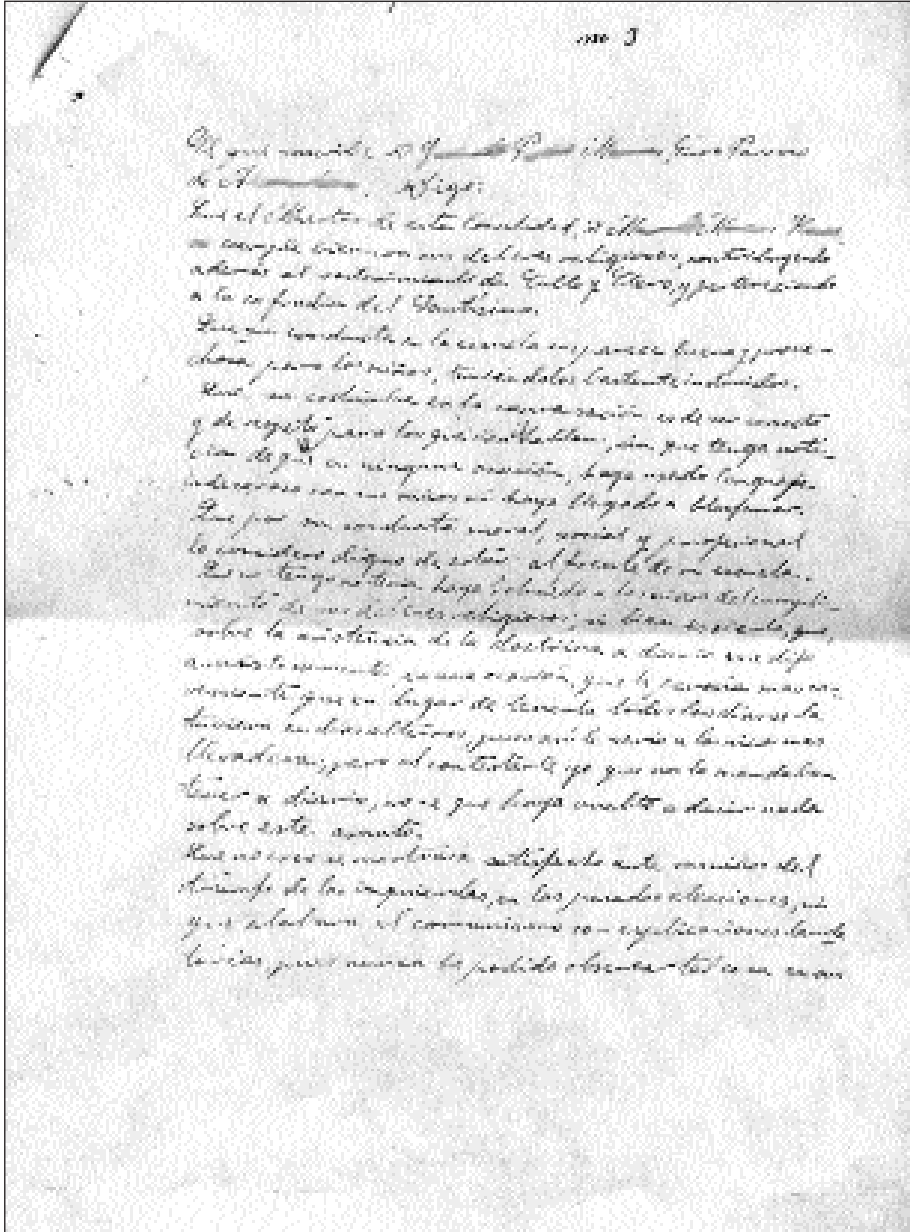 no 3
El que suscribe D. Cura Párroco
de Digo:
Que el Maestro de esta localidad, D.
se cumple con sus deberes religiosos, contribuyendo
además al sostenimiento de Culto y Clero, y perteneciendo
a la cofradía del Santísimo.
Que su conducta en la escuela es, buena y prove-
chosa para los niños, teniéndolos bastante instruidos.
Que su costumbre en la conversación es de ser correcto
y de respeto para los que con él hablan, sin que tenga noti-
cias de que en ninguna ocasión, haya usado lenguaje
indecoroso con sus niños ni haya llegado a blasfemar.
Que por su conducta moral, social y profesional
lo considero digno de estar al frente de su escuela.
Que no tengo noticia haya a los niños del cumpli-
miento de sus deberes religiosos; si bien es cierto, que,
sobre la asistencia de la doctrina a diario me dijo
en una ocasión, que le parecía más con-
veniente que en lugar de tenerla todos los días la
tuvieran en días alternos, pues así le sería a los niños mas
llevadero, pero al contestarle yo que nos lo mandaban
tener a diario, no sé que haya vuelto a decir nada
sobre este asunto.
Que no creo se mostrara satisfecho ante sus niños del
triunfo de las izquierdas, en las pasadas elecciones, ni
que alabara el comunismo con explicaciones
pues nunca he podido observar tal cosa